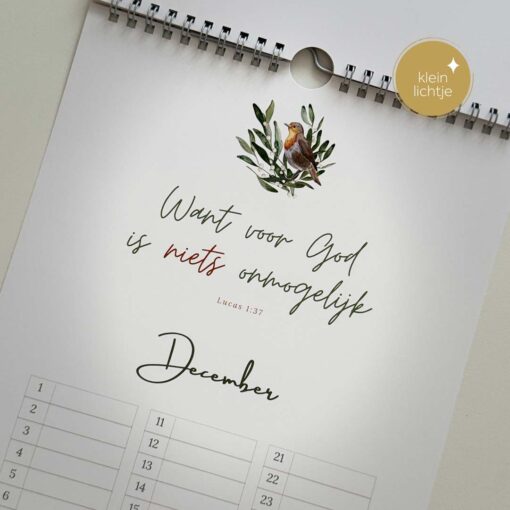 klein
lichtje
Want voor God
is niets onmogelijk
Lucas 1:37
December
1
2
3
4
5
6
11
12
13
14
15
21
22
23